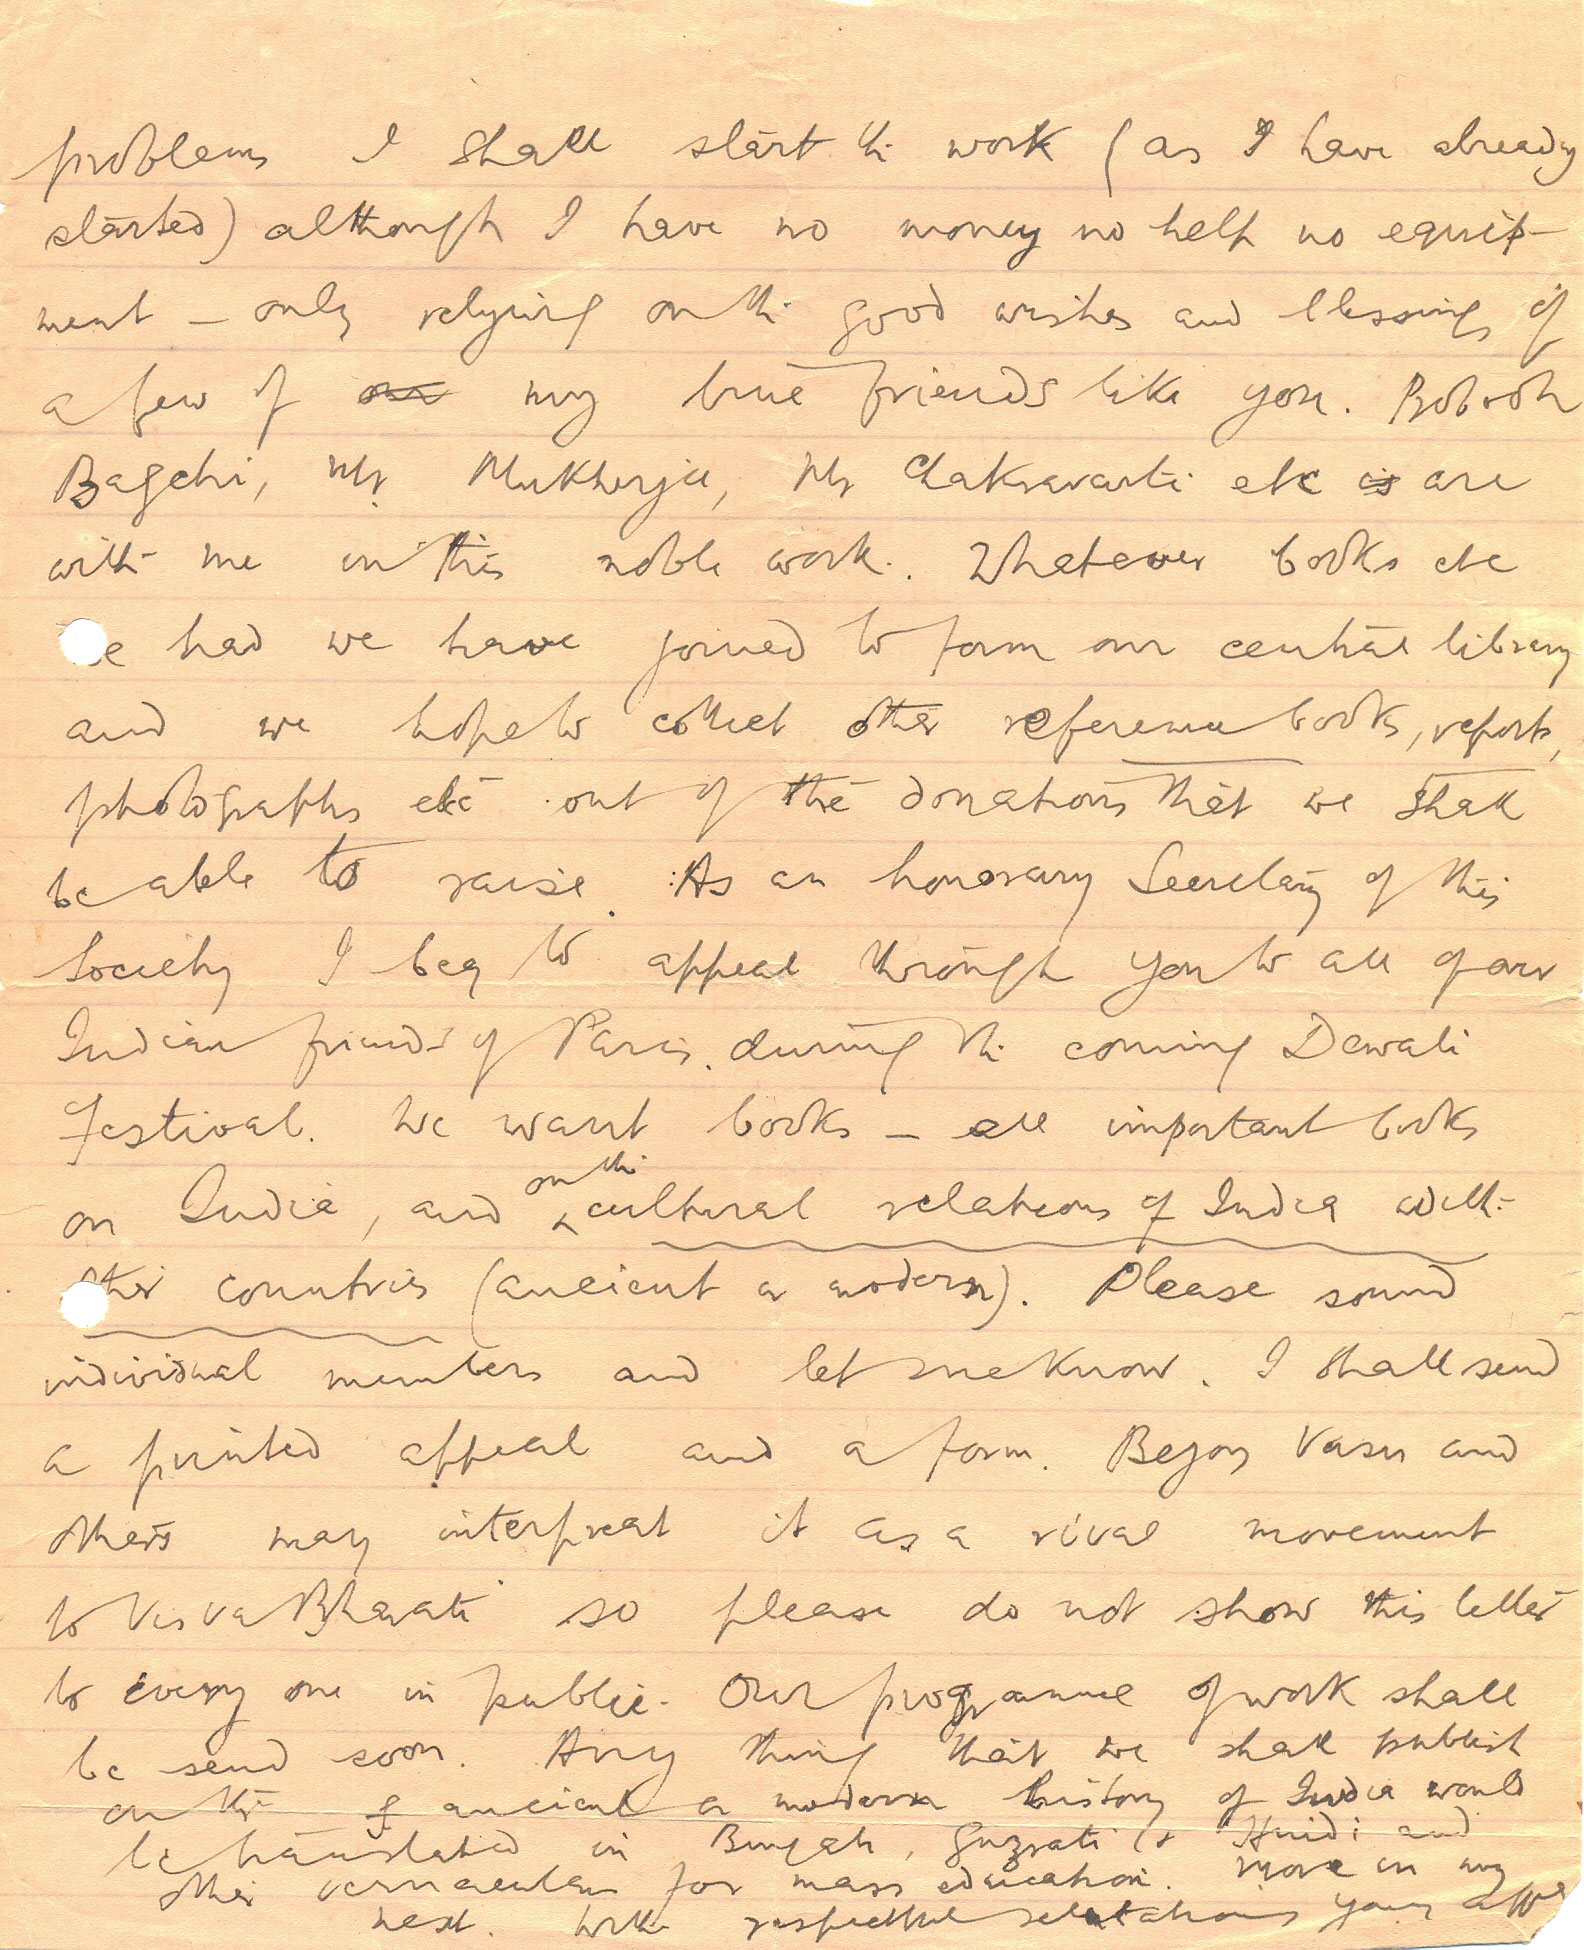 problems I shall start the work (as I have already
started) although I have no money no help no equip-
ment – only relying on the good wishes and blessings of
a few of my true friends like you. Probodh
Bagchi, Mr Mukherjee, Mr Chakravarti etc are
with me in this noble work. Whatever books etc
we had we have joined to form our central library
and we hope to collect other reference books, reports,
photographs etc out of the donations that we shall
be able to raise. As an honorary Secretary of this
Society I beg to appeal through you to all of our
Indian friends of Paris during the coming Dewali
festival. We want books – all important books
on India, and on the cultural relations of India with
other countries (ancient or modern). Please sound
individual members and let me know. I shall send
a printed appeal and a form. Bejoy Vasu and
others may interpreat it as a rival movement
to Visva Bharati so please do not show this letter
to every one in public. Our programme of work shall
be send soon. Any thing that we shall publish
on the ancient or modern history of India would
be translated in Bengali, Guzrati & Hindi and
other vernaculars for mass education. More in my
next. With respectful salutations yours affly